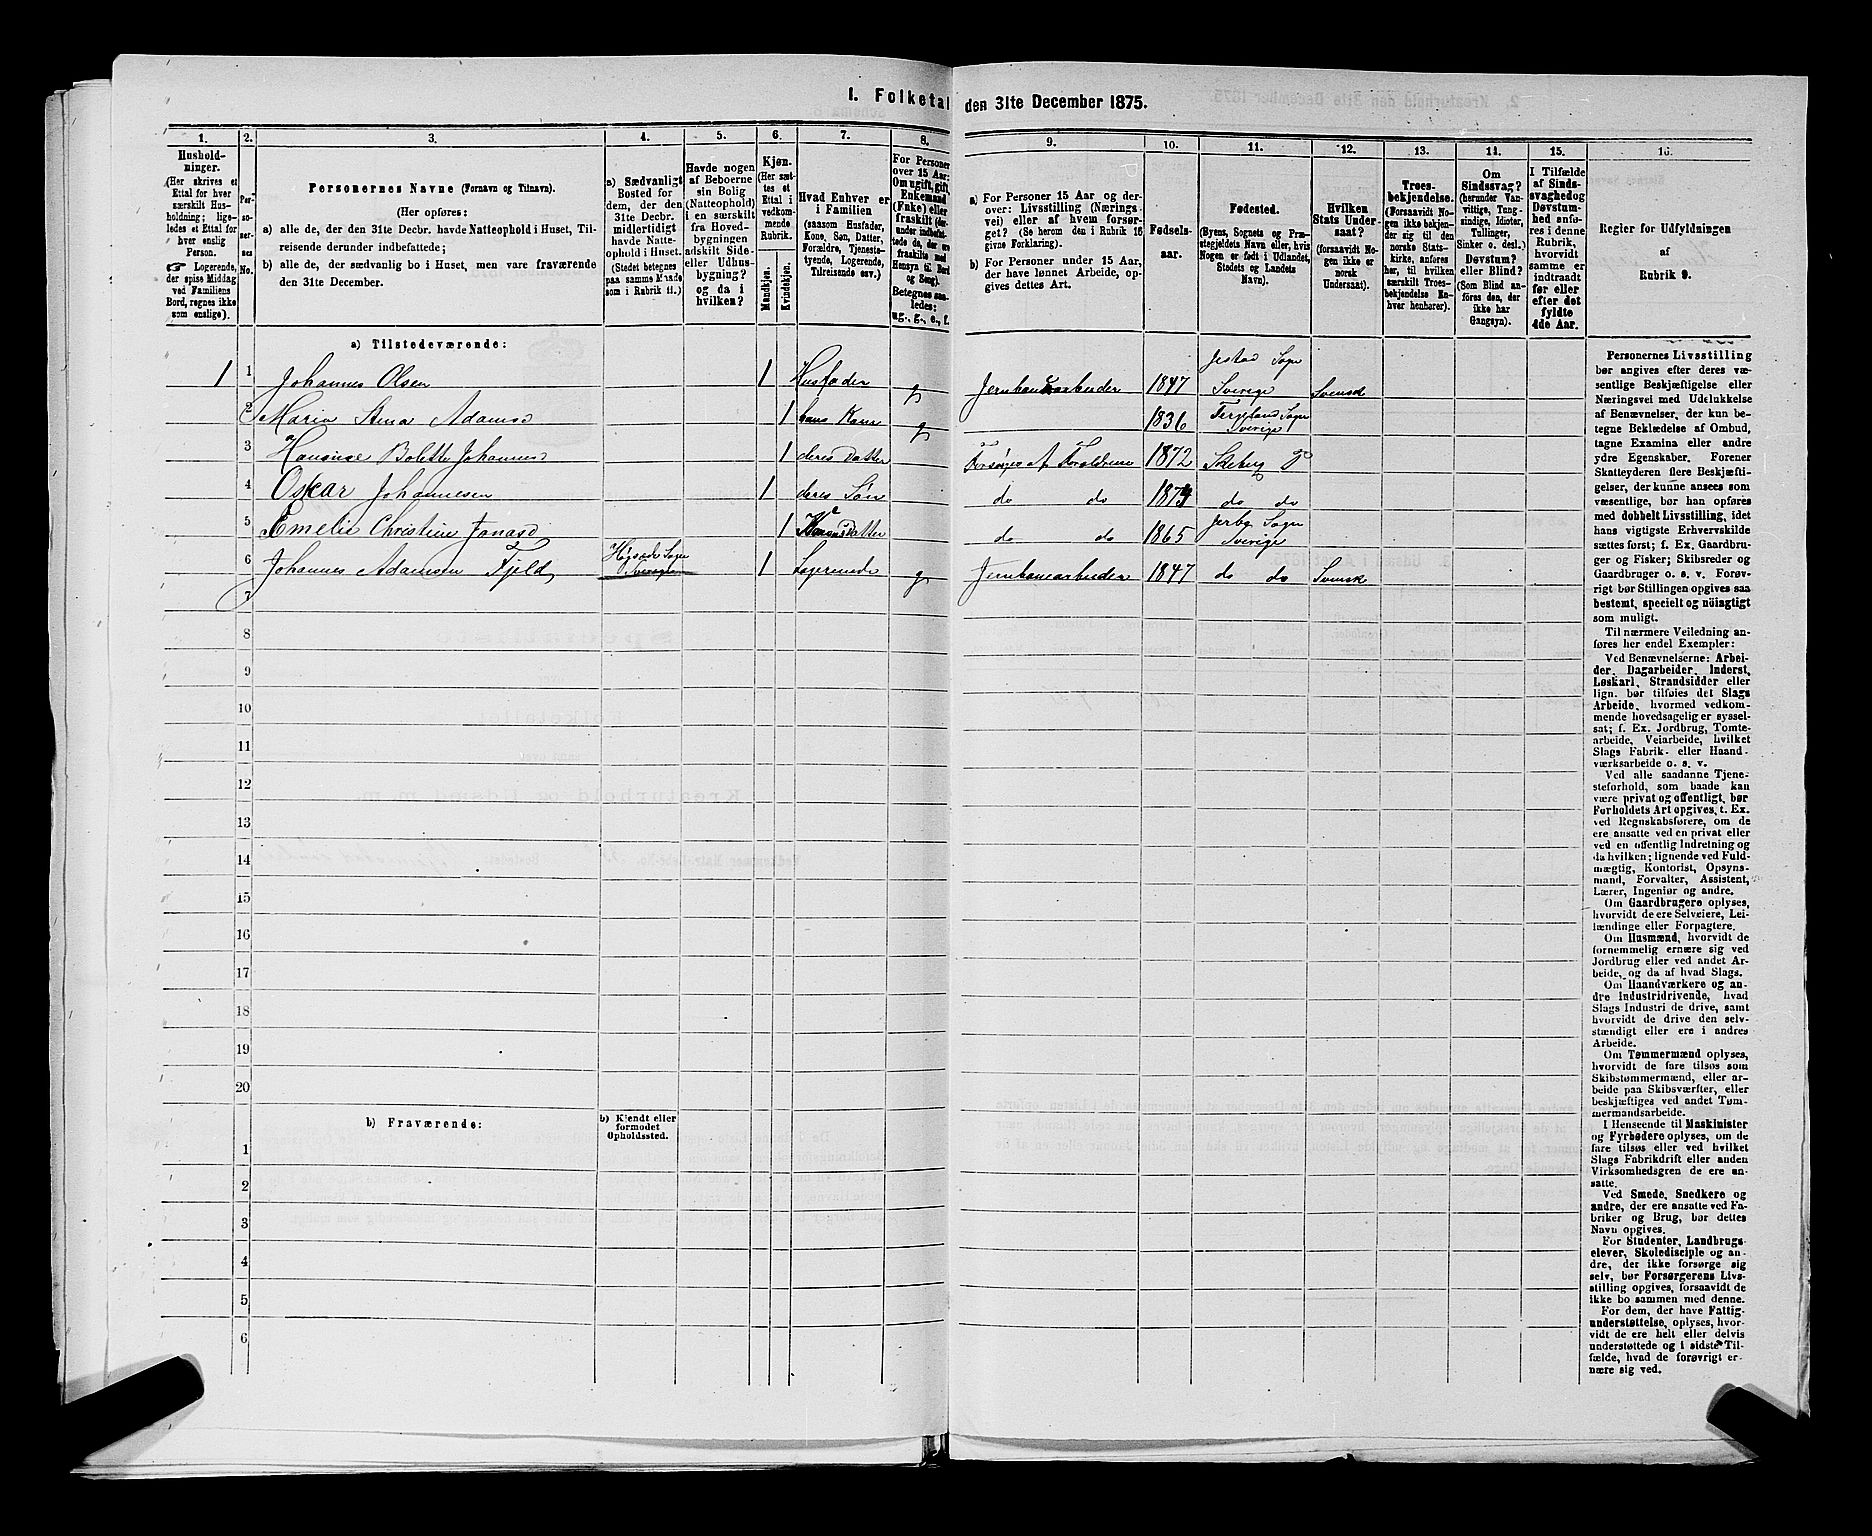 1. Folketal den 31te December 1875.
1. 2. 3. 4. 5. 6. 7. 8. 9. 10. 11. 12. 13. 14. 15. 16.
Hushold-
ninger.
(Her skrives et
Ettal for hver
særskilt Hus-
holdning; lige-
ledes et Ettal for
hver enslig
Person.
☞ Logerende,
der spise Middag
ved Familiens
Bord, regnes ikke
som enslige).
Per-
so-
ner-
nes
No.
Personernes Navne (Fornavn og Tilnavn).
(Her opføres:
a) alle de, der den 31te Decbr. havde Natteophold i Huset, Til-
reisende derunder indbefattede;
b) alle de, der sædvanlig bo i Huset, men vare fraværende
den 31te December.
a) Sædvanligt
Bosted for
dem, der den
31te Decbr.
midlertidigt
havde Natte-
ophold i Huset.
(Stedet betegnes
paa samme Maade
som i Rubrik 11.)
Havde nogen
af Beboerne
sin Bolig
(Natteophold)
i en særskilt
fra Hoved-
bygningen
adskilt Side-
eller Udhus-
bygning?
og da i
hvilken?
Kjøn.
(Her sæt-
tes et
Ettal i
vedkom-
mende
Rubrik.
Mandkjøn.
Kvindekjøn.
Hvad Enhver er
i Familien
(saasom Husfader,
Kone, Søn, Datter,
Forældre, Tjeneste-
tyende, Logerende,
Tilreisende osv.)
For Personer
over 15 Aar:
Om ugift, gift,
Enkemand
(Enke) eller
fraskilt (der-
under indbefat-
tede de, der ere
fraskilte med
Hensyn til Bord
og Seng).
Betegnes saa-
ledes:
ug., g., e., f.
a) For Personer 15 Aar og der-
over: Livsstilling (Nærings-
vei) eller af hvem forsør-
get? (Se herom den i Rubrik 16
givne Forklaring).
b) For Personer under 15 Aar,
der have lønnet Arbeide, op-
gives dettes Art.
Fødsels-
aar.
Fødested.
(Byens, Sognets og Præ-
stegjeldets Navn eller, hvis
Nogen er født i Udlandet,
Stedets og Landets
Navn).
Hvilken
Stats Under-
saat?
(forsaavidt No-
gen ikke er
norsk
Undersaat).
Troes-
bekjendelse.
(Forsaavidt No-
gen ikke bekjen-
der sig til den
norske Stats-
kirke, anføres
her, til hvilken
særskilt Troes-
bekjendelse En-
hver henhører).
Om
Sindssvag?
(herunder Van-
vittige, Tung-
sindige, Idioter,
Tullinger,
Sinker o. desl.)
Døvstum?
eller Blind?
(Som Blind an-
føres den, der
ikke har
Gangsyn).
I Tilfælde
af Sinds-
svaghed og
Døvstum-
hed anfø-
res i denne
Rubrik,
hvorvidt
samme er
indtraadt
før eller
efter det
fyldte
4de Aar.
Regler for Udfyldningen
af
Rubrik 9.
a) Tilstedeværende:
1 1 Johannes Olsen 1 Husfader g Jernbanearbeider 1847 Sogn Sverige Svensk
2 Maria Stina Adamsd 1 hans Kone g 1836 Sogn Sverige
3 Hansine Bolette Johannesd 1 deres Datter Forsørges af Forældrene 1872 Skeberg
4 Oskar Johannesen 1 deres Søn do do 1874 do do
5 Emelie Christine Jonasd 1 Datter do do 1865 Sogn Sverige
6 Johannes Adamsen Fjeld Sogn Sverige 1 Logerende g Jernbanearbeider 1847 do do Svensk
7
8
9
10
11
12
13
14
15
16
17
18
19
20
b) Fraværende:
b) Kjendt eller
formodet
Opholdssted.
1
2
3
4
5
6
Personernes Livsstilling
bør angives efter deres væ-
sentlige Beskjæftigelse eller
Næringsvei med Udelukkelse
af Benævnelser, der kun be-
tegne Beklædelse af Ombud,
tagne Examina eller andre
ydre Egenskaber. Forener
Skatteyderen flere Beskjæfti-
gelser, der kunne ansees som
væsentlige, bør han opføres
med dobbelt Livsstilling, idet
hans vigtigste Erhvervskilde
sættes først; f. Ex. Gaardbru-
ger og Fisker; Skibsreder og
Gaardbruger o. s. v. Forøv-
rigt bør Stillingen opgives saa
bestemt, specielt og nöiagtigt
som muligt.
Til nærmere Veiledning an-
føres her endel Exempler:
Ved Benævnelserne: Arbei-
der, Dagarbeider, Inderst,
Løskarl, Strandsidder eller
lign. bør tilføies det Slags
Arbeide, hvormed vedkom-
mende hovedsagelig er syssel-
sat; f. Ex. Jordbrug, Tomte-
arbeide, Veiarbeide, hvilket
Slags Fabrik- eller Haand-
værksarbeide o. s. v.
Ved alle saadanne Tjene-
steforhold, som baade kan
være privat og offentligt, bør
Forholdets Art opgives, t. Ex.
ved Regnskabsførere, om de
ere ansatte ved en privat eller
ved en offentlig Indretning og
da hvilken; lignende ved Fuld-
mægtig, Kontorist, Opsyns-
mand, Forvalter, Assistent,
Lærer, Ingeniør og andre.
Om Gaardbrugere oplyses,
hvorvidt de ere Selveiere, Lei-
lændinge eller Forpagtere.
Om Husmænd, hvorvidt de
fornemmelig ernære sig ved
Jordbrug eller ved andet Ar-
beide, og da af hvad Slags.
Om Haandværkere og an-
dre Industridrivende, hvad
Slags Industri de drive, samt
hvorvidt de drive den selv-
stændigt eller ere i andres
Arbeide.
Om Tømmermænd oplyses,
hvorvidt de fare tilsøs som
Skibstømmermænd, eller ar-
beide paa Skibsværfter, eller
beskjæftiges ved andet Tøm-
mermandsarbeide.
I Henseende til Maskinister
og Fyrbødere oplyses, om de
fare tilsøs eller ved hvilket
Slags Fabrikdrift eller anden
Virksomhedsgren de ere an-
satte.
Ved Smede, Snedkere og
andre, der ere ansatte ved Fa-
briker og Brug, bør dettes
Navn opgives.
For Studenter, Landbrugs-
elever, Skoledisciple og an-
dre, der ikke forsørge sig
selv, bør Forsørgerens Livs-
stilling opgives, forsaavidt de
ikke bo sammen med denne.
For dem, der have Fattig-
understøttelse, oplyses, hvor-
vidt de ere helt eller delvis
understøttede og i sidste Til-
fælde, hvad de forøvrigt er-
nære sig ved.